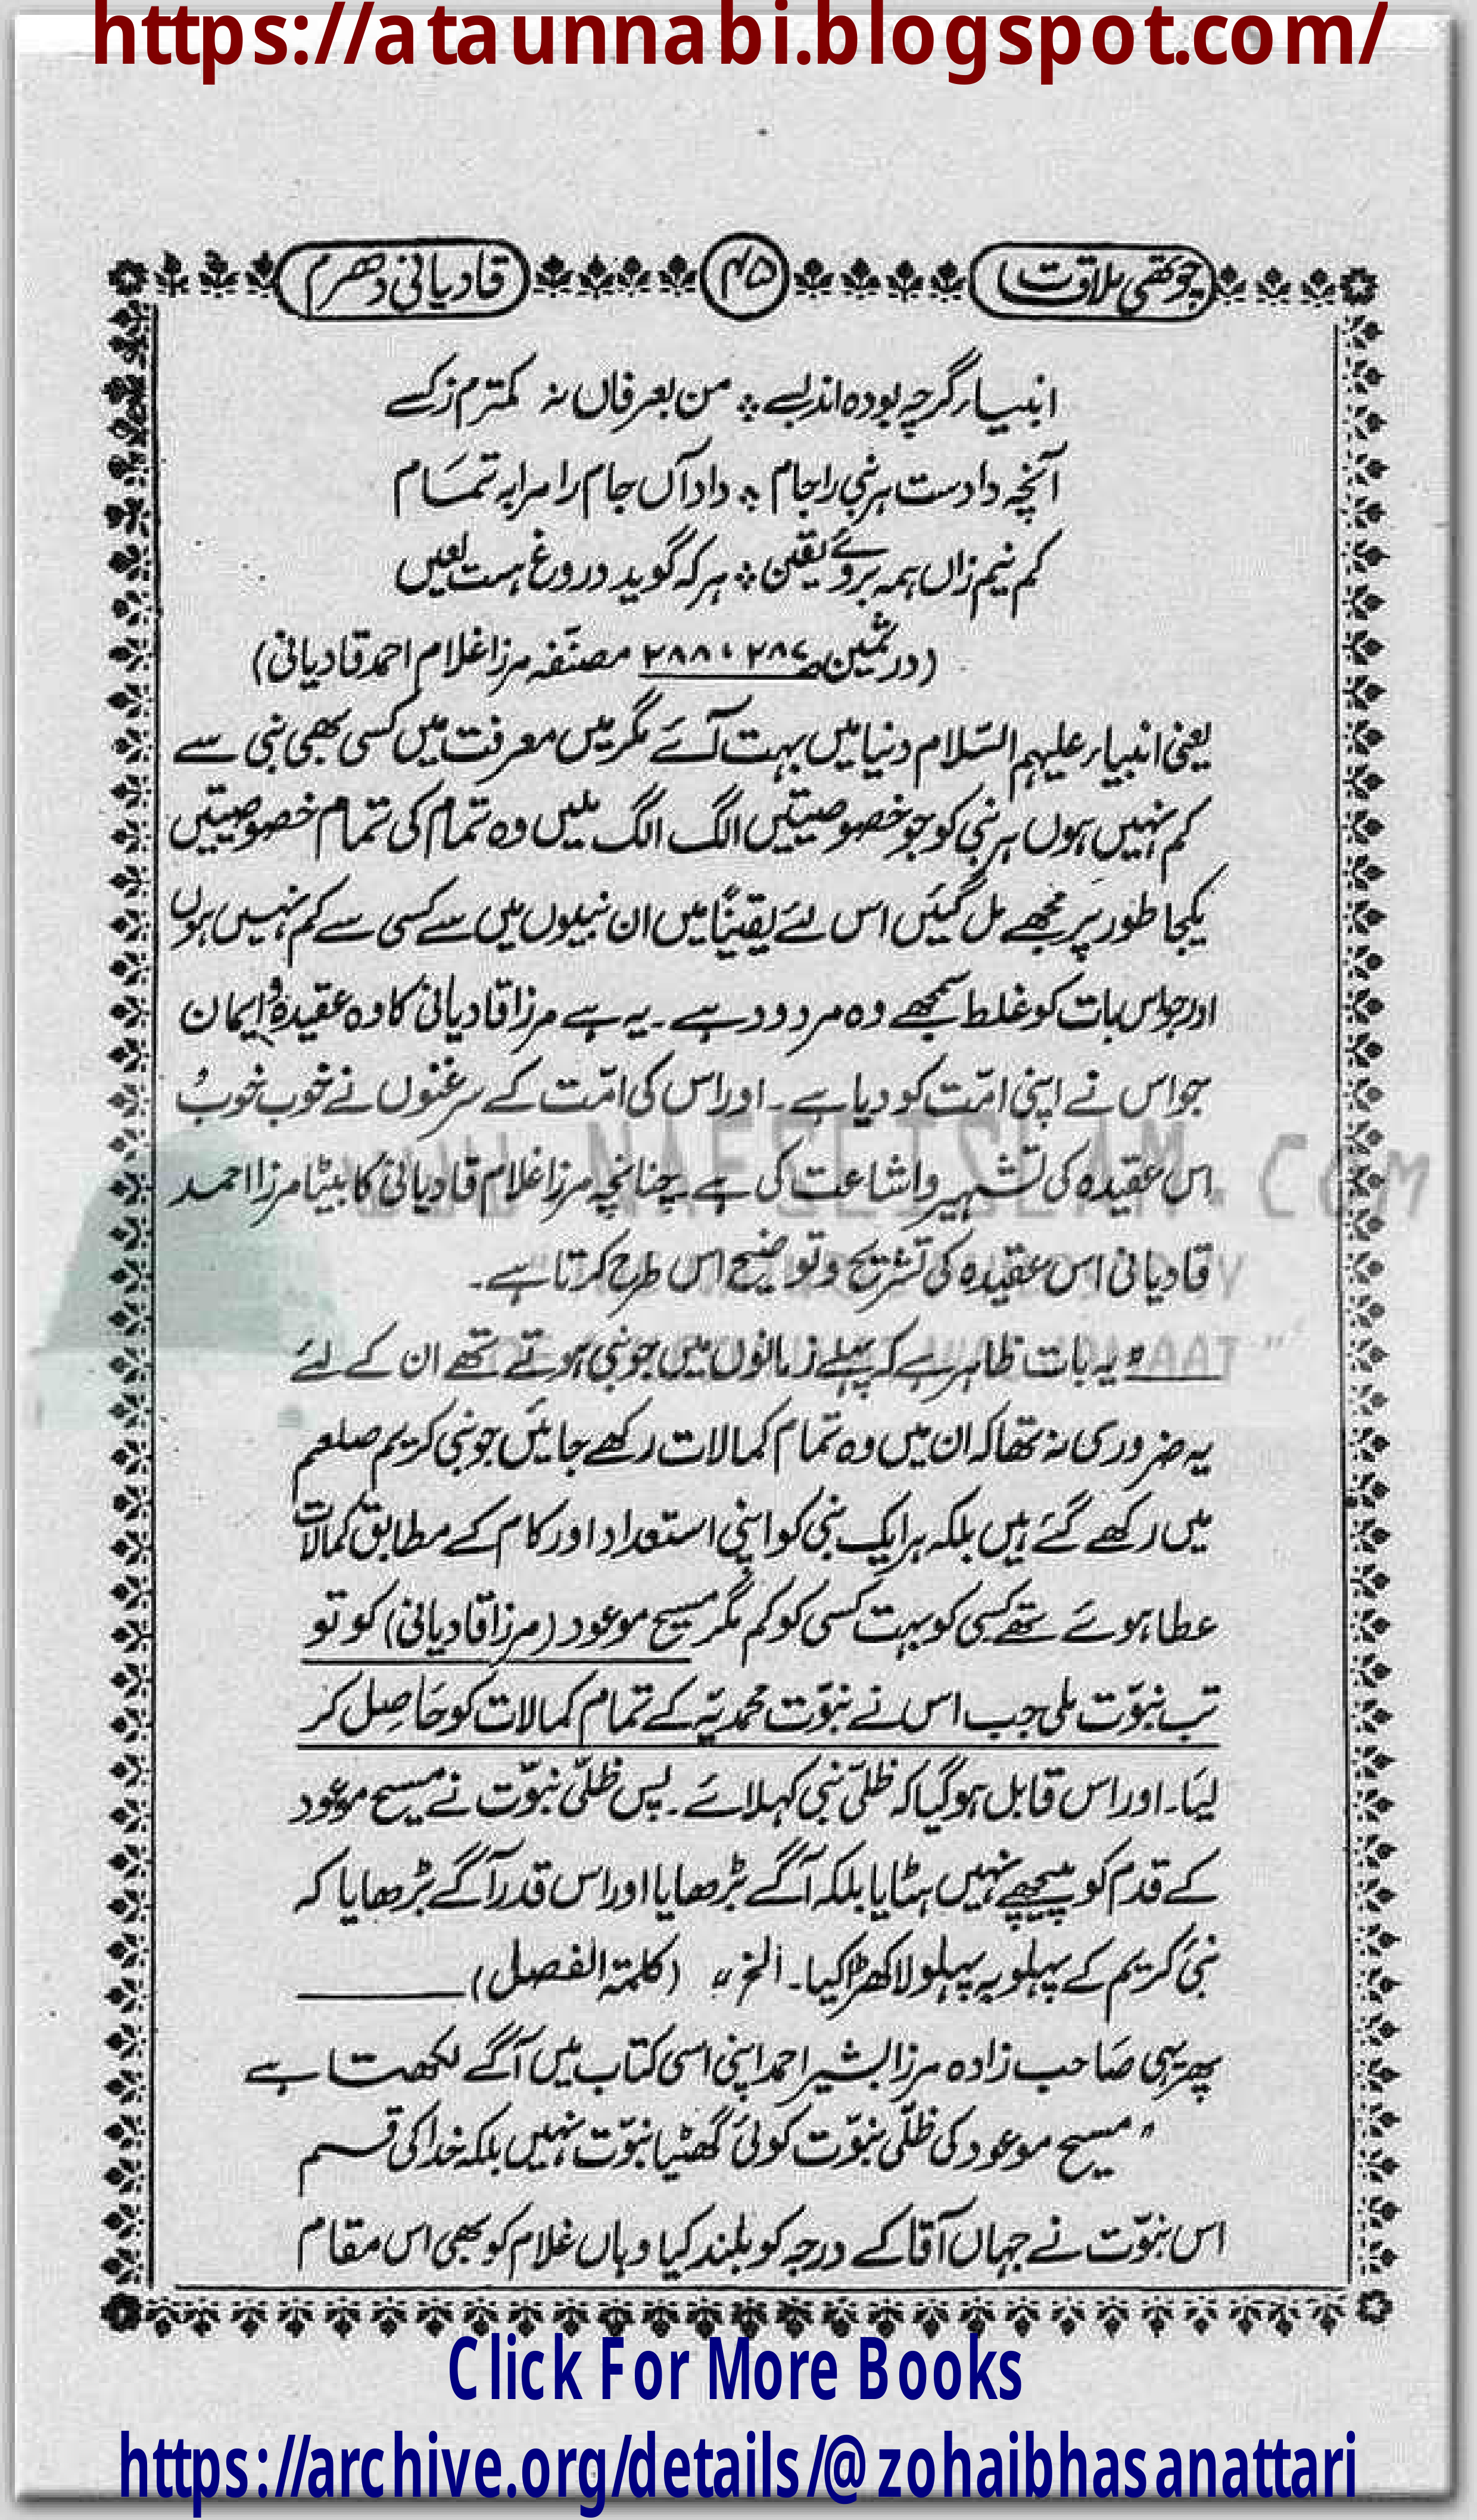 https://ataunnabi.blogspot.com/
چوتھی ملاقت ۴۵ قادیانی دھرم
انبیاء گرچہ بودہ اند بسے ٭ من بعرفاں نہ کمترم زکسے
آنچہ دادست ہر نبی را جام ٭ داد آں جام را مرا بہ تمام
کم نیم زاں ہمہ بروئے یقین ٭ ہر کہ گوید دروغ ہست لعیں
(در ثمین ۲۸۷، ۲۸۸ مصنّفہ مرزا غلام احمد قادیانی)
یعنی انبیاء علیہم السّلام دنیا میں بہت آئے مگر میں معرفت میں کسی بھی نبی سے
کم نہیں ہوں ہر نبی کو جو خصوصیتیں الگ الگ ملیں وہ تمام کی تمام خصوصیتیں
یکجا طور پر مجھے مل گئیں اس لئے یقیناً میں ان نبیوں میں سے کسی سے کم نہیں ہوں
اور جو اس بات کو غلط سمجھے وہ مردود ہے ۔ یہ ہے مرزا قادیانی کا وہ عقیدہ و ایمان
جو اس نے اپنی امّت کو دیا ہے ۔ اور اس کی امّت کے سرغنوں نے خوب خوب
اس عقیدہ کی تشہیر و اشاعت کی ہے چنانچہ مرزا غلام قادیانی کا بیٹا مرزا احمد
قادیانی اس عقیدہ کی تشریح و توضیح اس طرح کرتا ہے ۔
"یہ بات ظاہر ہے کہ پہلے زمانوں میں جو نبی ہوتے تھے ان کے لئے
یہ ضروری نہ تھا کہ ان میں وہ تمام کمالات رکھے جائیں جو نبی کریم صلعم
میں رکھے گئے ہیں بلکہ ہر ایک نبی کو اپنی استعداد اور کام کے مطابق کمالات
عطا ہوئے تھے کسی کو بہت کسی کو کم مگر مسیح موعود (مرزا قادیانی) کو تو
تب نبوّت ملی جب اس نے نبوّت محمدیّہ کے تمام کمالات کو حاصل کر
لیا ۔ اور اس قابل ہو گیا کہ ظلّی نبی کہلائے ۔ پس ظلّی نبوّت نے مسیح موعود
کے قدم کو پیچھے نہیں ہٹایا بلکہ آگے بڑھایا اور اس قدر آگے بڑھایا کہ
نبی کریم کے پہلو بہ پہلو لا کھڑا کیا ۔ الخ" (کلمۃ الفصل)
پھر یہی صاحب زادہ مرزا بشیر احمد اپنی اسی کتاب میں آگے لکھتا ہے
"مسیح موعود کی ظلّی نبوّت کوئی گھٹیا نبوّت نہیں بلکہ خدا کی قسم
اس نبوّت نے جہاں آقا کے درجہ کو بلند کیا وہاں غلام کو بھی اس مقام
WWW.NAFSEISLAM.COM
Click For More Books
https://archive.org/details/@zohaibhasanattari